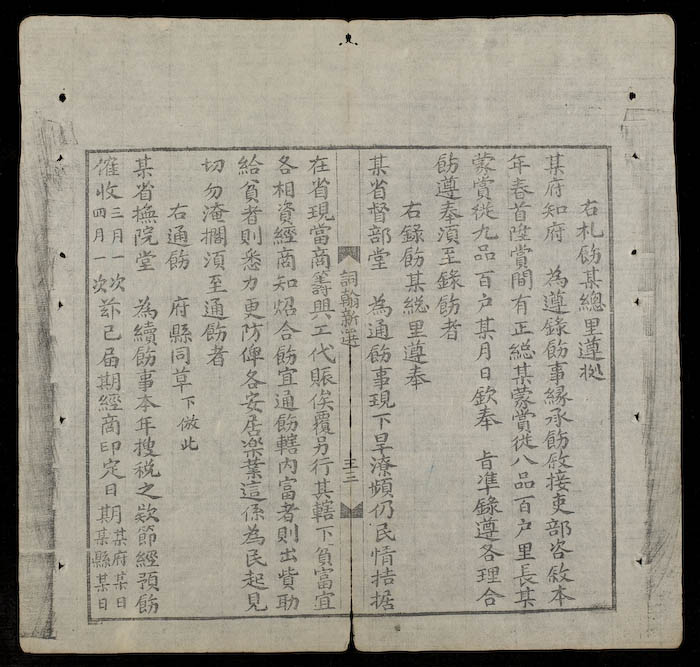 右札飭某總里遵拠
某府知府 為遵錄飭事緣承飭敘接吏部咨敘本
年春首陞賞間有正総某蒙賞從八品百户里長某
蒙賞從九品百户某月日欽奉 旨準錄遵各理合
飭遵奉湏至錄飭者
右錄飭某総里遵奉
某省督部堂 為通飭事現下旱潦頻仍民情拮据
詞翰新選
在省現當商籌興工代賑俟覆另行其轄下貧富宜
各相資經商知炤合飭宜通飭轄内富者則出貲助
給貧者則悉力更防俾各安居楽葉這係為民起見
切勿淹擱湏至通飭者
右通飭 府縣同草下倣此
某省撫院堂 為續飭事本年搜税之欵節經預飭
催收三月一次四月一次茲已届期經商印定日期某府某日某縣某日